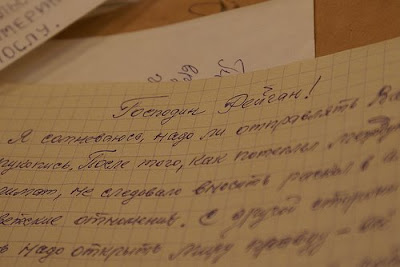 МЕРИ
ПОСЛУ.
Господин Рейган!
Я сомневаюсь, надо ли отправлять Ва
укопись. После того, как потеплел
лимат, не следовало вносить раскол в а
ветские отношения. С другой стороны
надо открыть миру правду –